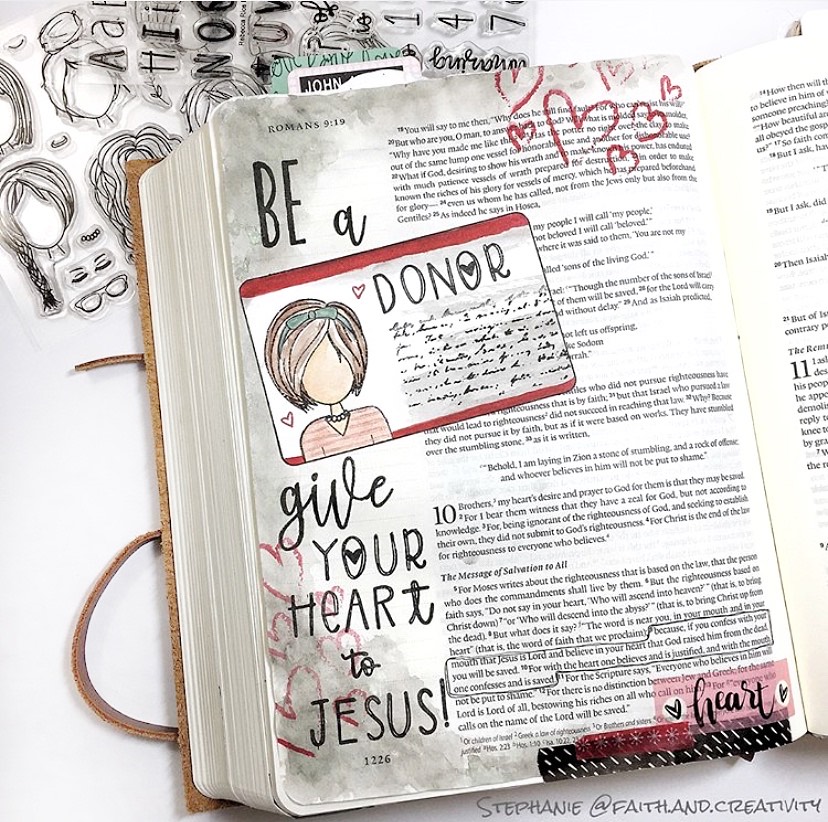 JOHN
ROMANS 9:19
BE a
DONOR
give
YOUR
HEART
to
JESUS!
1226
19You will say to me then, "Why does he still find fault? For who can resist his will?"
20But who are you, O man, to answer
"Why have you made me like this?"
out of the same lump one vessel for
22What if God, desiring to show his wrath and to make known his power, has endured
with much patience vessels of wrath prepared for destruction, in order to make
known the riches of his glory for vessels of mercy, which he has prepared beforehand
for glory— 24even us whom he has called, not from the Jews only but also from the
Gentiles? 25As indeed he says in Hosea,
my people I will call 'my people,'
not beloved I will call 'beloved.'"
where it was said to them, 'You are not my
called 'sons of the living God.'"
"Though the number of the sons of Israel
of them will be saved, 28for the Lord will carry
d without delay." 29And as Isaiah predicted,
not left us offspring,
like Sodom
who did not pursue righteousness have
righteousness that is by faith; 31but that Israel who pursued a law
that would lead to righteousness did not succeed in reaching that law. 32Why? Because
they did not pursue it by faith, but as if it were based on works. They have stumbled
over the stumbling stone, 33as it is written,
"Behold, I am laying in Zion a stone of stumbling, and a rock of offense;
and whoever believes in him will not be put to shame."
10 Brothers, my heart's desire and prayer to God for them is that they may be saved.
2For I bear them witness that they have a zeal for God, but not according to
knowledge. 3For, being ignorant of the righteousness of God, and seeking to establish
their own, they did not submit to God's righteousness. 4For Christ is the end of the law
for righteousness to everyone who believes.
The Message of Salvation to All
5For Moses writes about the righteousness that is based on the law, that the person
who does the commandments shall live by them. 6But the righteousness based on
faith says, "Do not say in your heart, 'Who will ascend into heaven?'" (that is, to bring
Christ down) 7"or 'Who will descend into the abyss?'" (that is, to bring Christ up from
the dead). 8But what does it say? "The word is near you, in your mouth and in your
heart" (that is, the word of faith that we proclaim); 9because, if you confess with your
mouth that Jesus is Lord and believe in your heart that God raised him from the dead,
you will be saved. 10For with the heart one believes and is justified, and with the mouth
one confesses and is saved. 11For the Scripture says, "Everyone who believes in him will
not be put to shame." 12For there is no distinction between Jew and Greek; for the same
Lord is Lord of all, bestowing his riches on all who call on him. 13For "everyone who
calls on the name of the Lord will be saved."
heart
14How then will th
to believe in him of
someone preaching?
"How beautiful are
all obeyed the gospe
18But I ask, have
19But I ask, did
20Then Isaiah
21But of Is
contrary p
The Rem
11 I ask
STEPHANIE @FAITH.AND.CREATIVITY